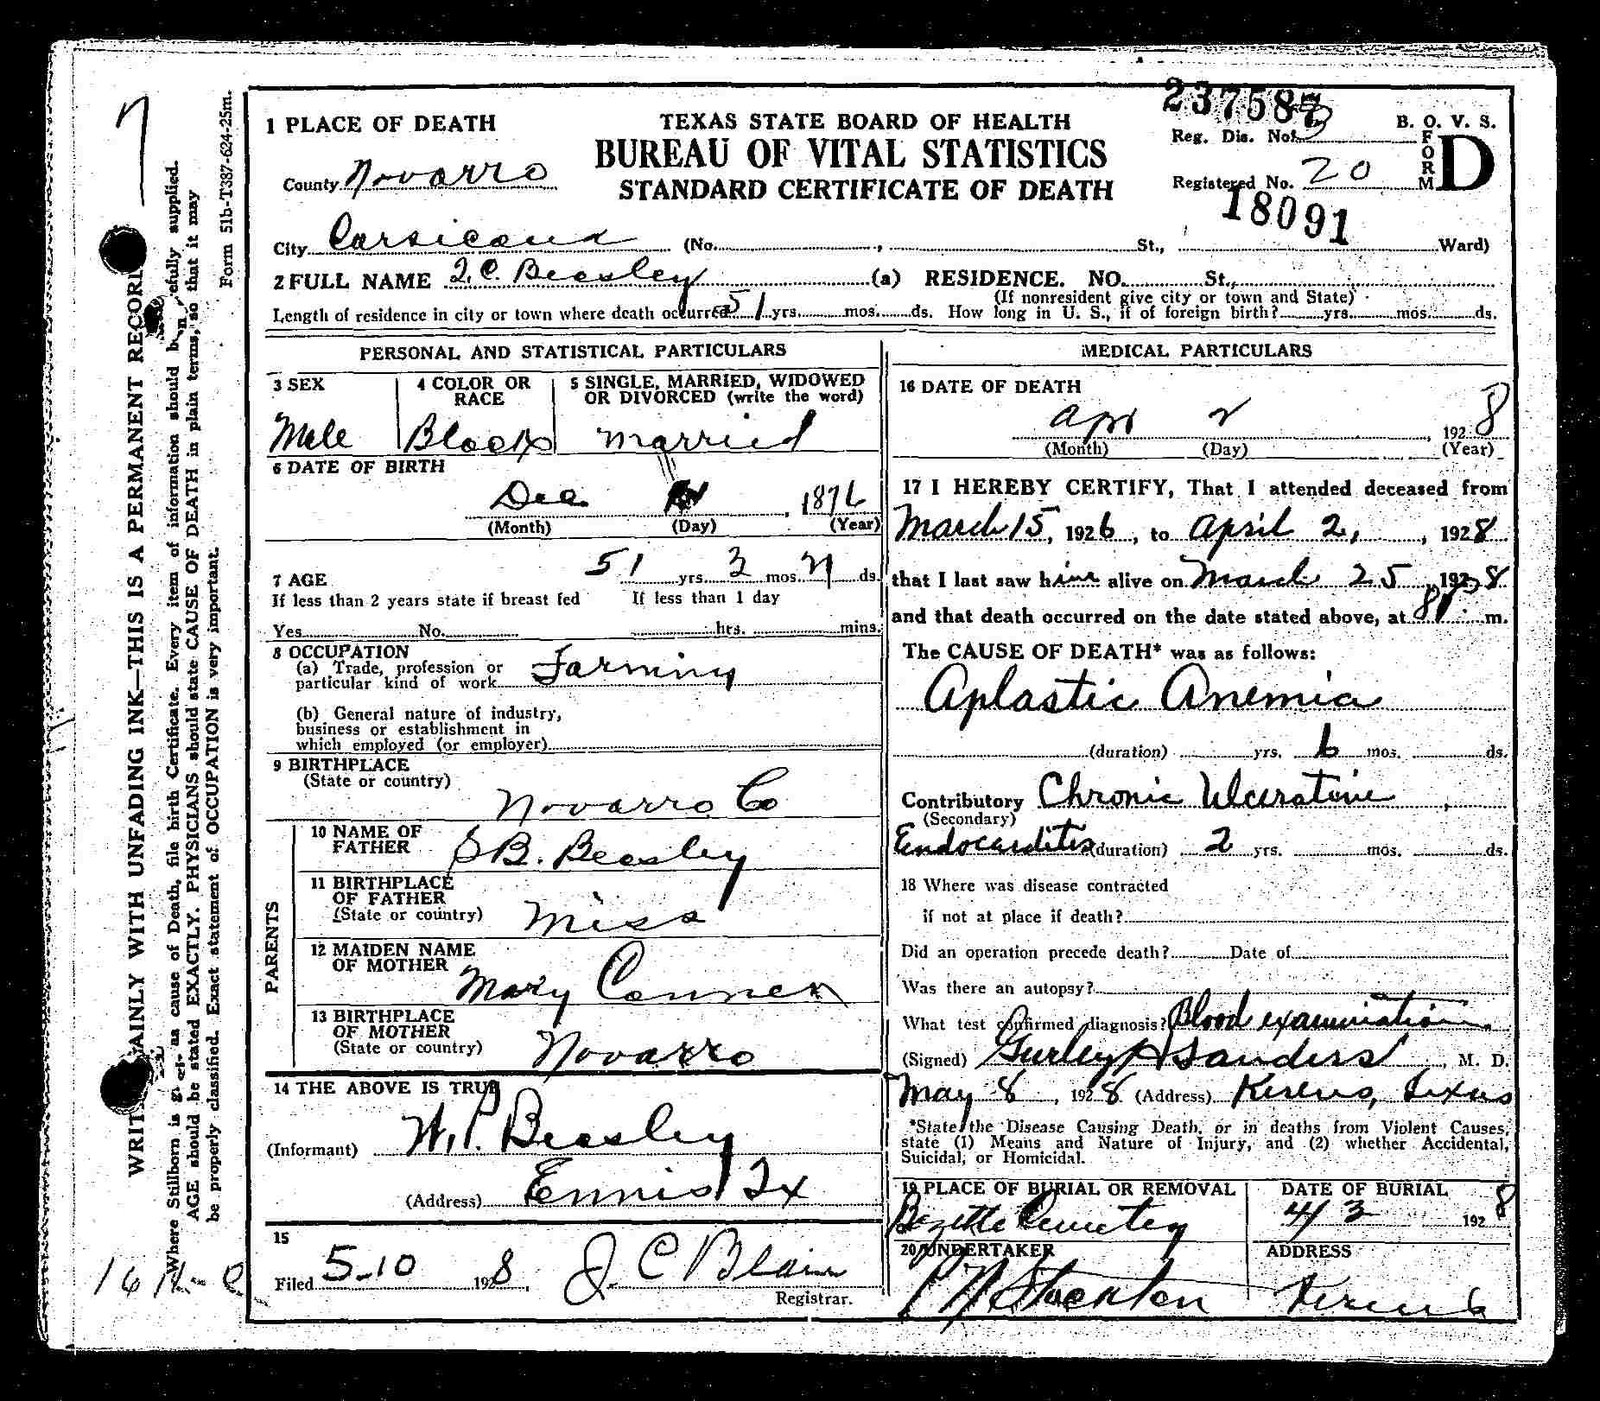 237587
1 PLACE OF DEATH
TEXAS STATE BOARD OF HEALTH
B. O. V. S.
Reg. Dis. No. 3
BUREAU OF VITAL STATISTICS
FORM D
County Novarro
STANDARD CERTIFICATE OF DEATH
Registered No. 20
18091
City Corsicana (No. , St., Ward)
2 FULL NAME Beasley (a) RESIDENCE. NO. St.,
(If nonresident give city or town and State)
Length of residence in city or town where death occurred 51 yrs. mos. ds. How long in U. S., if of foreign birth? yrs. mos. ds.
PERSONAL AND STATISTICAL PARTICULARS
3 SEX
4 COLOR OR RACE
5 SINGLE, MARRIED, WIDOWED
OR DIVORCED (write the word)
Male Black Married
6 DATE OF BIRTH
Dec , 1876
(Month) (Day) (Year)
7 AGE 51 yrs. 3 mos. ds.
If less than 2 years state if breast fed If less than 1 day
Yes No. hrs. mins.
8 OCCUPATION
(a) Trade, profession or
particular kind of work Farming
(b) General nature of industry,
business or establishment in
which employed (or employer)
9 BIRTHPLACE
(State or country)
Novarro Co
PARENTS
10 NAME OF
FATHER S B. Beasley
11 BIRTHPLACE
OF FATHER
(State or country) Miss
12 MAIDEN NAME
OF MOTHER Mary Conner
13 BIRTHPLACE
OF MOTHER
(State or country) Novarro
14 THE ABOVE IS TRUE
(Informant) W. P. Beasley
(Address) Ennis Tx
15
Filed 5-10 1928, J. C Blair
Registrar.
MEDICAL PARTICULARS
16 DATE OF DEATH
Apr 2, 1928
(Month) (Day) (Year)
17 I HEREBY CERTIFY, That I attended deceased from
March 15, 1926, to April 2, , 1928
that I last saw him alive on March 25, 1928
and that death occurred on the date stated above, at m.
The CAUSE OF DEATH* was as follows:
Aplastic Anemia
(duration) yrs. 6 mos. ds.
Contributory Chronic Ulcerative
(Secondary)
Endocarditis (duration) 2 yrs. mos. ds.
18 Where was disease contracted
if not at place if death?
Did an operation precede death? Date of
Was there an autopsy?
What test confirmed diagnosis? Blood examination
(Signed) Gurley H Sanders, M. D.
May 8, 1928 (Address) Kerens, Texas
*State the Disease Causing Death, or in deaths from Violent Causes,
state (1) Means and Nature of Injury, and (2) whether Accidental,
Suicidal, or Homicidal.
19 PLACE OF BURIAL OR REMOVAL
DATE OF BURIAL
Bazette Cemetery 4/3 1928
20 UNDERTAKER
ADDRESS
Stockton Kerens
WRITE PLAINLY WITH UNFADING INK—THIS IS A PERMANENT RECORD
Where Stillborn is given as cause of Death, file birth Certificate. Every item of information should be carefully supplied.
AGE should be stated EXACTLY. PHYSICIANS should state CAUSE OF DEATH in plain terms, so that it may
be properly classified. Exact statement of OCCUPATION is very important.
Form 51b-T387-624-25m.